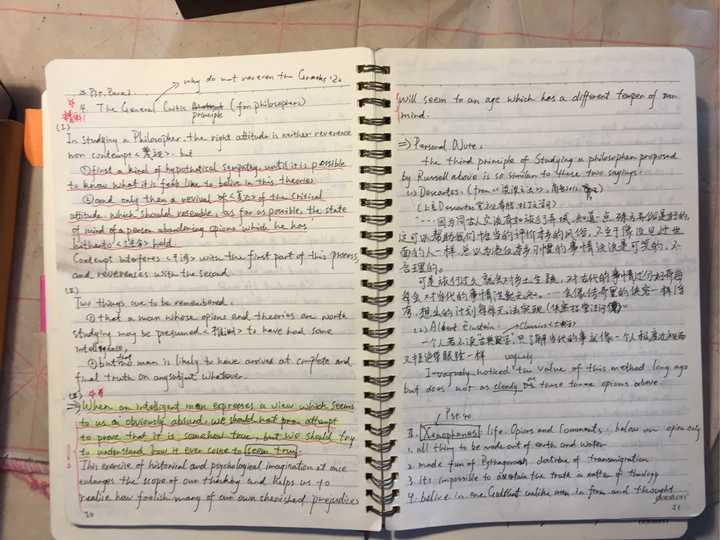 why do not reveren the Greeks: 20
3. Pst. Para 2
4. The General Critic Abstract (for philosophers)
principle
(I)
In studying a Philosopher, the right attitude is neither reverence
non contempt <蔑视>, but
①first a kind of hypothetical sympathy, until it is possible
to know what it feels like to believe in this theories
②and only then a revival of the critical
attitude, which should resemble, as far as possible, the state
of mind of a person abandoning opinions which he has
hitherto held.
Contempt interferes with the first part of this process,
and reverences with the second.
(II)
Two things are to be remembered:
①that a man whose opions and theories are worth
studying may be presumed <推测> to have had some
intelligence,
②but that no man is likely to have arrived at complete and
final truth on any subject whatever.
(III)
⇒ When an intelligent man expresses a view which seems
to us a obviously absurd, we should not attempt
to prove that it is somehow true, but we should try
to understand how it ever come to seem true.
This exercise of historical and psychological imagination at once
enlarges the scope of our thinking and helps us to
realize how foolish many of our own cherished prejudices
20
will seem to an age which has a different temper of
mind.
⇒ Personal Note.
the third principle of studying a philosophan proposed
by Russell above is so similar to these two sayings:
(1) Descartes. (from
因为同古人交谈有如旅行异域,知道一点殊方异俗是好的,
这可以帮助我们恰当的评价本乡的风俗,不至于像没见过世
面的人一样,总以为违反本乡习惯的事情该是可笑的,不
合理的。
可是旅行过久就会对乡土生疏,对古代的事情过分好奇每
每会对当代的事情茫然无知。
想出的计划每每无法实现
(2) Albert Einstein.
一个人
又不追带眼镜一样
vaguely
I vaguely noticed the value of this method long ago
but does not as clearly as these two opions above.
Pst 40
II. Xenophanes: life. Opions and Comments.
1. all thing to be made out of earth and water
2. made fun of Pythagorean doctrine of transmigration
3. its impossible to ascertain the truth in matters of theology
4. believe in one God that unlike men in form and thoughts
21